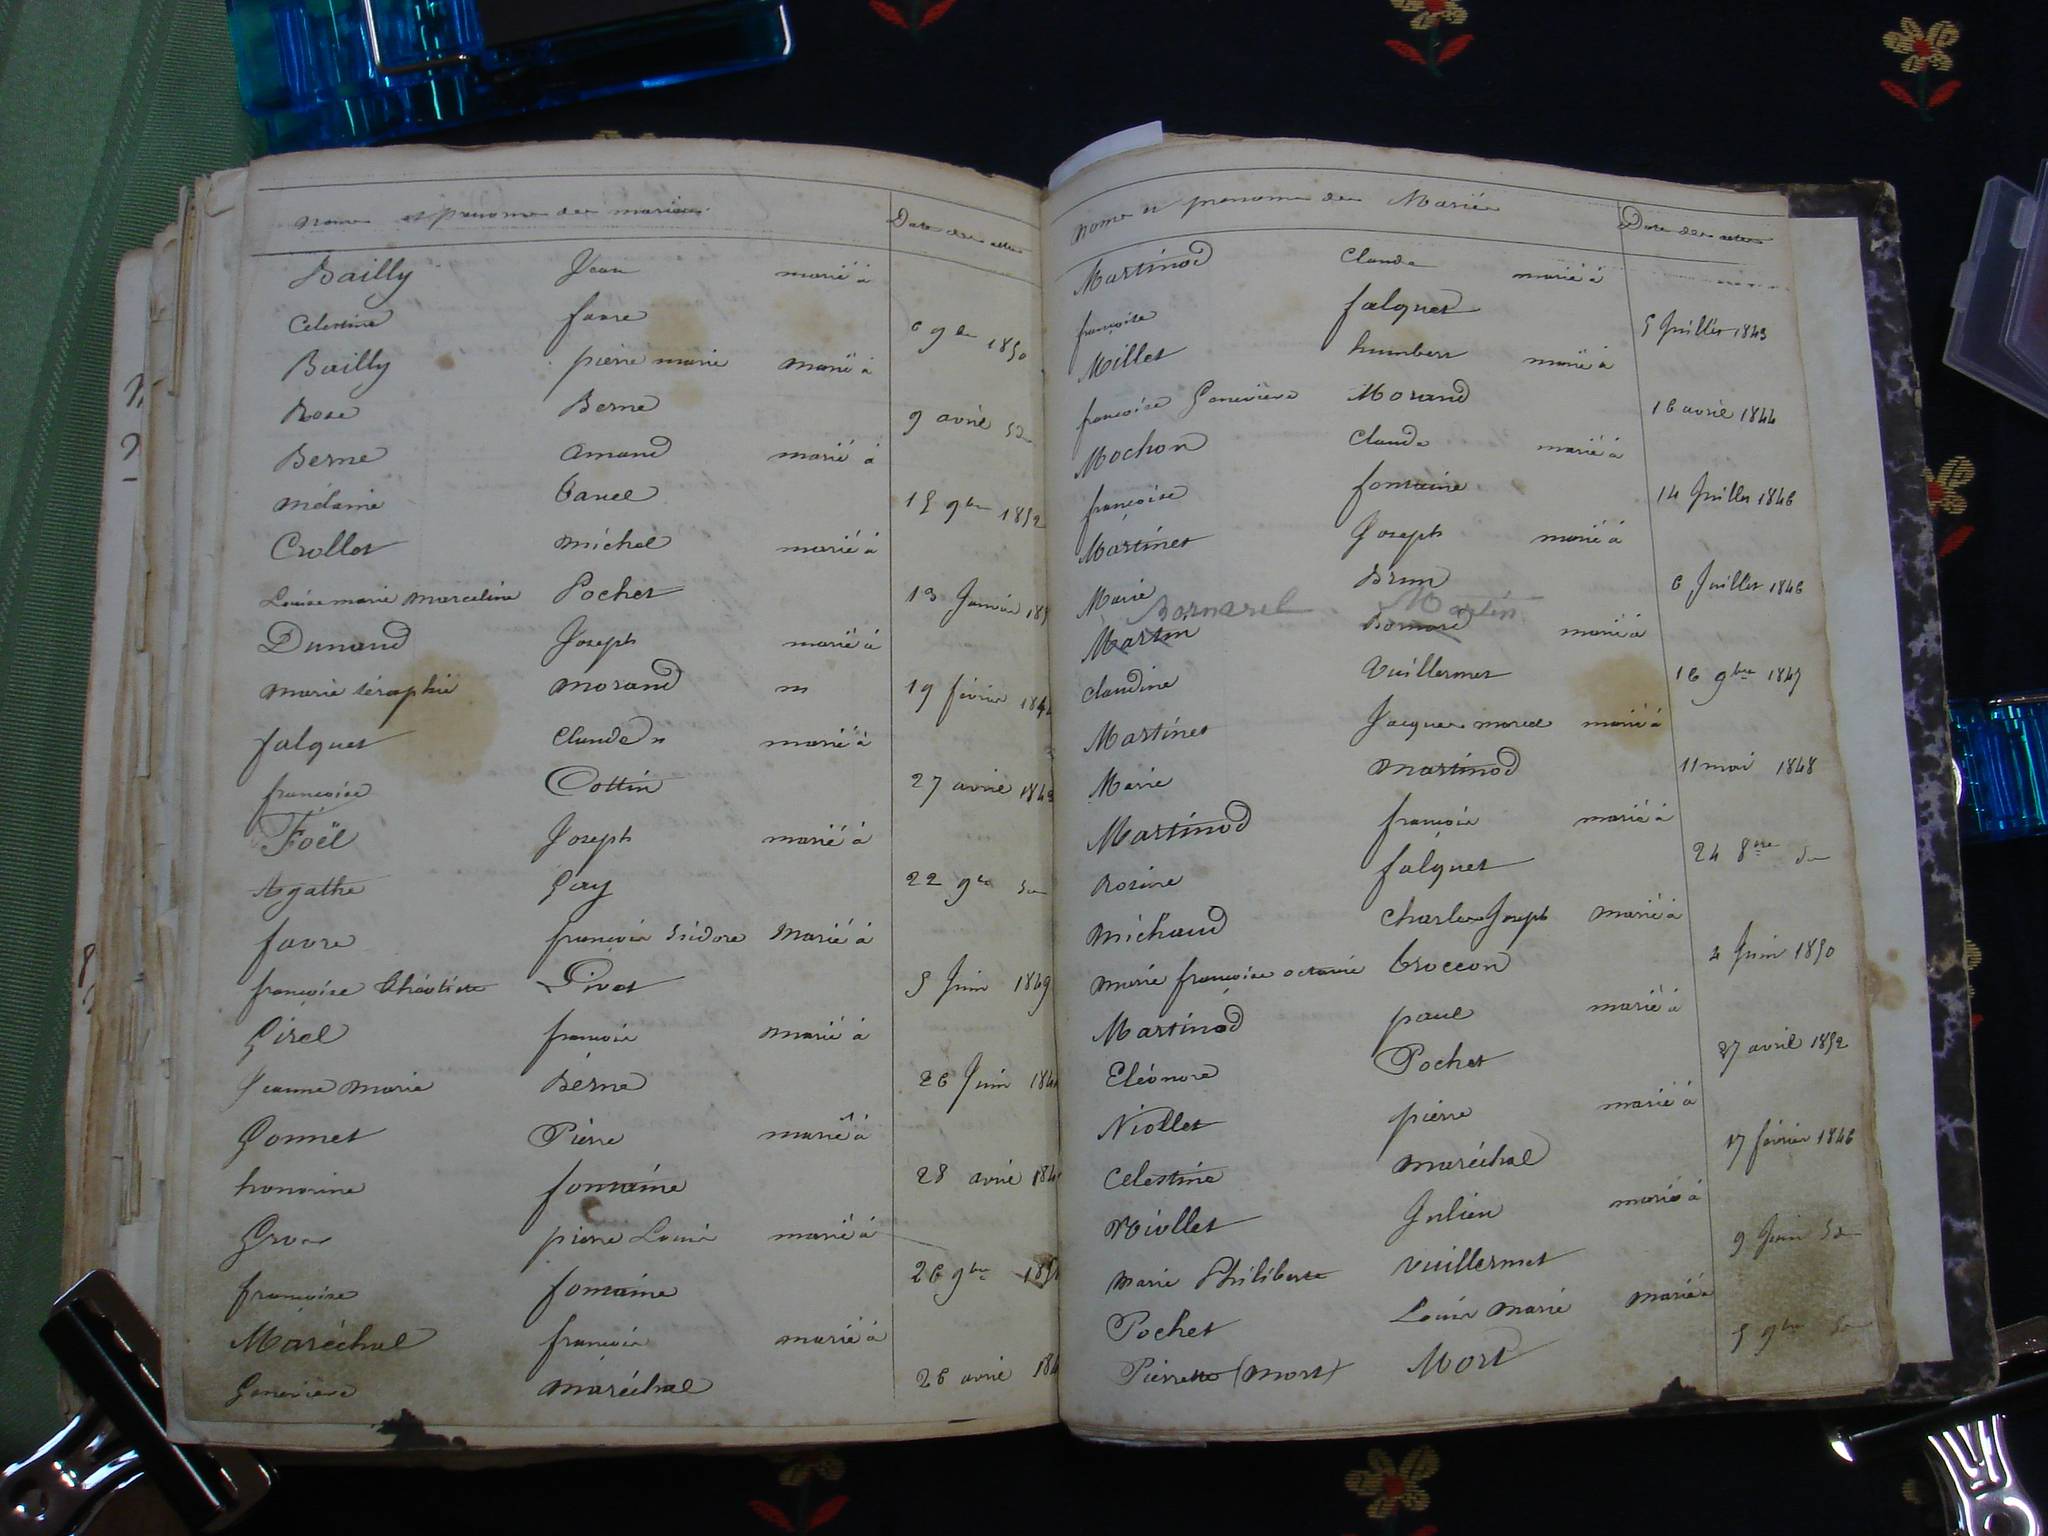 Noms et prenoms des mariés
Date des actes
Bailly Jean marié à
Celestine favre 6 9bre 1850
Bailly pierre marie marié à
Rose Berne 9 avril do
Berne amand marié à
mélanie 15 9bre 1852
Crollet michel marié à
Louise marie marceline Pochet 13 Janvier
Dunand Joseph marié à
marie séraphie morand 19 février
falquet Claude marié à
françoise Cottin 27 avril
Foël Joseph marié à
Agathe Gay 22 9bre do
favre françois isidore marié à
françoise Pivot 5 Juin 1849
Girel françois marié à
Jeanne marie Berne 26 Juin
Gonnet Pierre marié à
honorine fontaine 28 avril
Gros pierre Louis marié à
françoise fontaine 26 9bre
Maréchal françois marié à
Geneviève maréchal 26 avril
Noms et prenoms des Mariés
Date des actes
Martinod Claude marié à
françoise falquet 5 Juillet 1843
Millet humbert marié à
françoise Geneviève Morand 16 avril 1844
Mochon Claude marié à
françoise fontaine 14 Juillet 1846
Martinet Joseph marié à
Marie Brun 6 Juillet 1846
Bornarel Martin
Martin marié à
claudine Vuillermet 16 9bre 1847
Martinet Jacques marcel marié à
Marie martinod 11 mai 1848
Martinod françois marié à
Rosine falquet 24 8bre do
michaud charles Joseph marié à
marie françoise octavie 4 Juin 1850
Martinod paul marié à
Eléonore Pochet 27 avril 1852
Niollet pierre marié à
Celestine maréchal 17 février 1846
Niollet Julien marié à
marie Philiberte Vuillermet 9 Juin do
Pochet Louis marie marié à
Pierrette (mort) Mort 5 9bre do